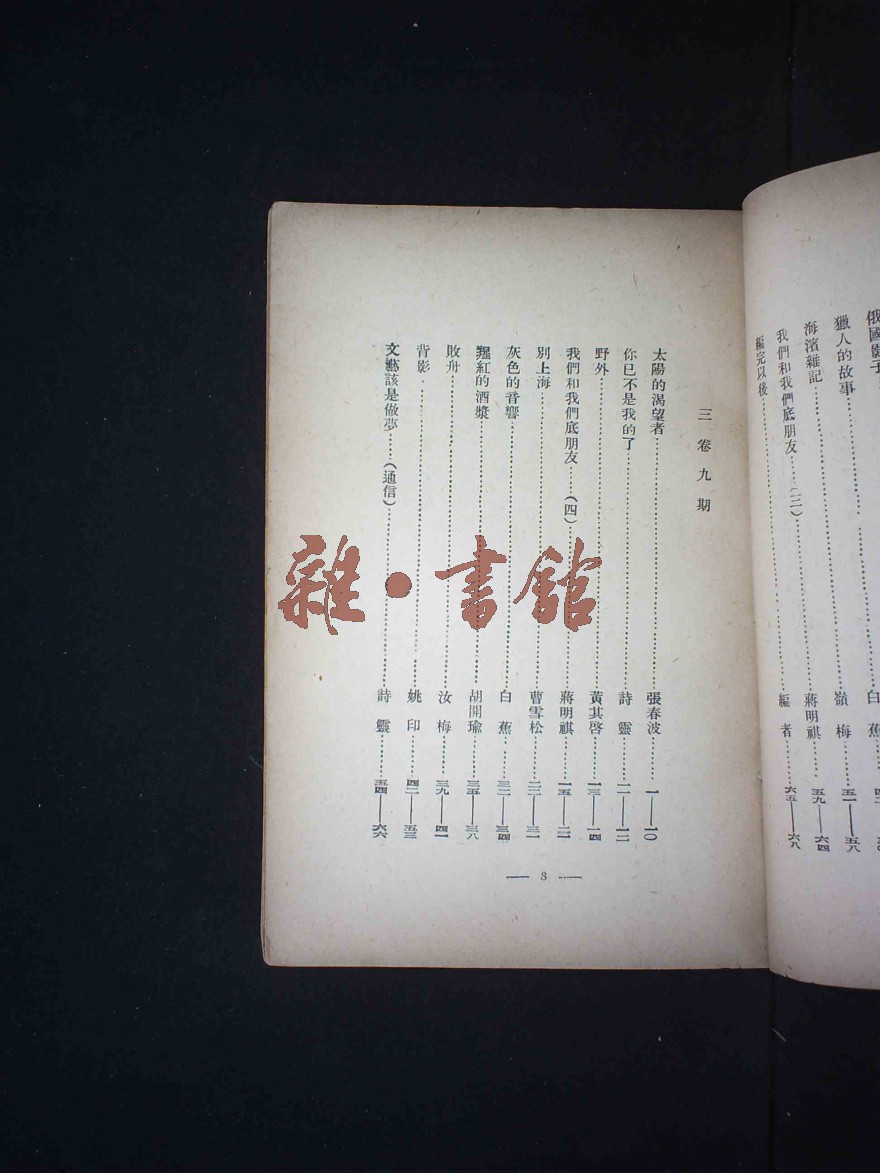 俄國影子
白蕉
獵人的故事 嶺梅 五一——五八
海濱雜記 蔣明祺 五九——六四
我們和我們底朋友(三)
編完以後 編者 六五——六八
三卷九期
太陽的渴望者 張春波 一——一〇
你已不是我的了 詩靈 一一——一二
野外 黃其啓 一三——一四
我們和我們底朋友(四) 蔣明祺 一五——二一
別上海 曹雪松 二二——三一
灰色的音響 白蕉 三二——三四
猩紅的酒漿 胡開瑜 三五——三八
敗舟 汝梅 三九——四一
背影 姚印 四二——五三
文藝該是做夢(通信) 詩靈 五四——六六
— 8 —
雜·書館